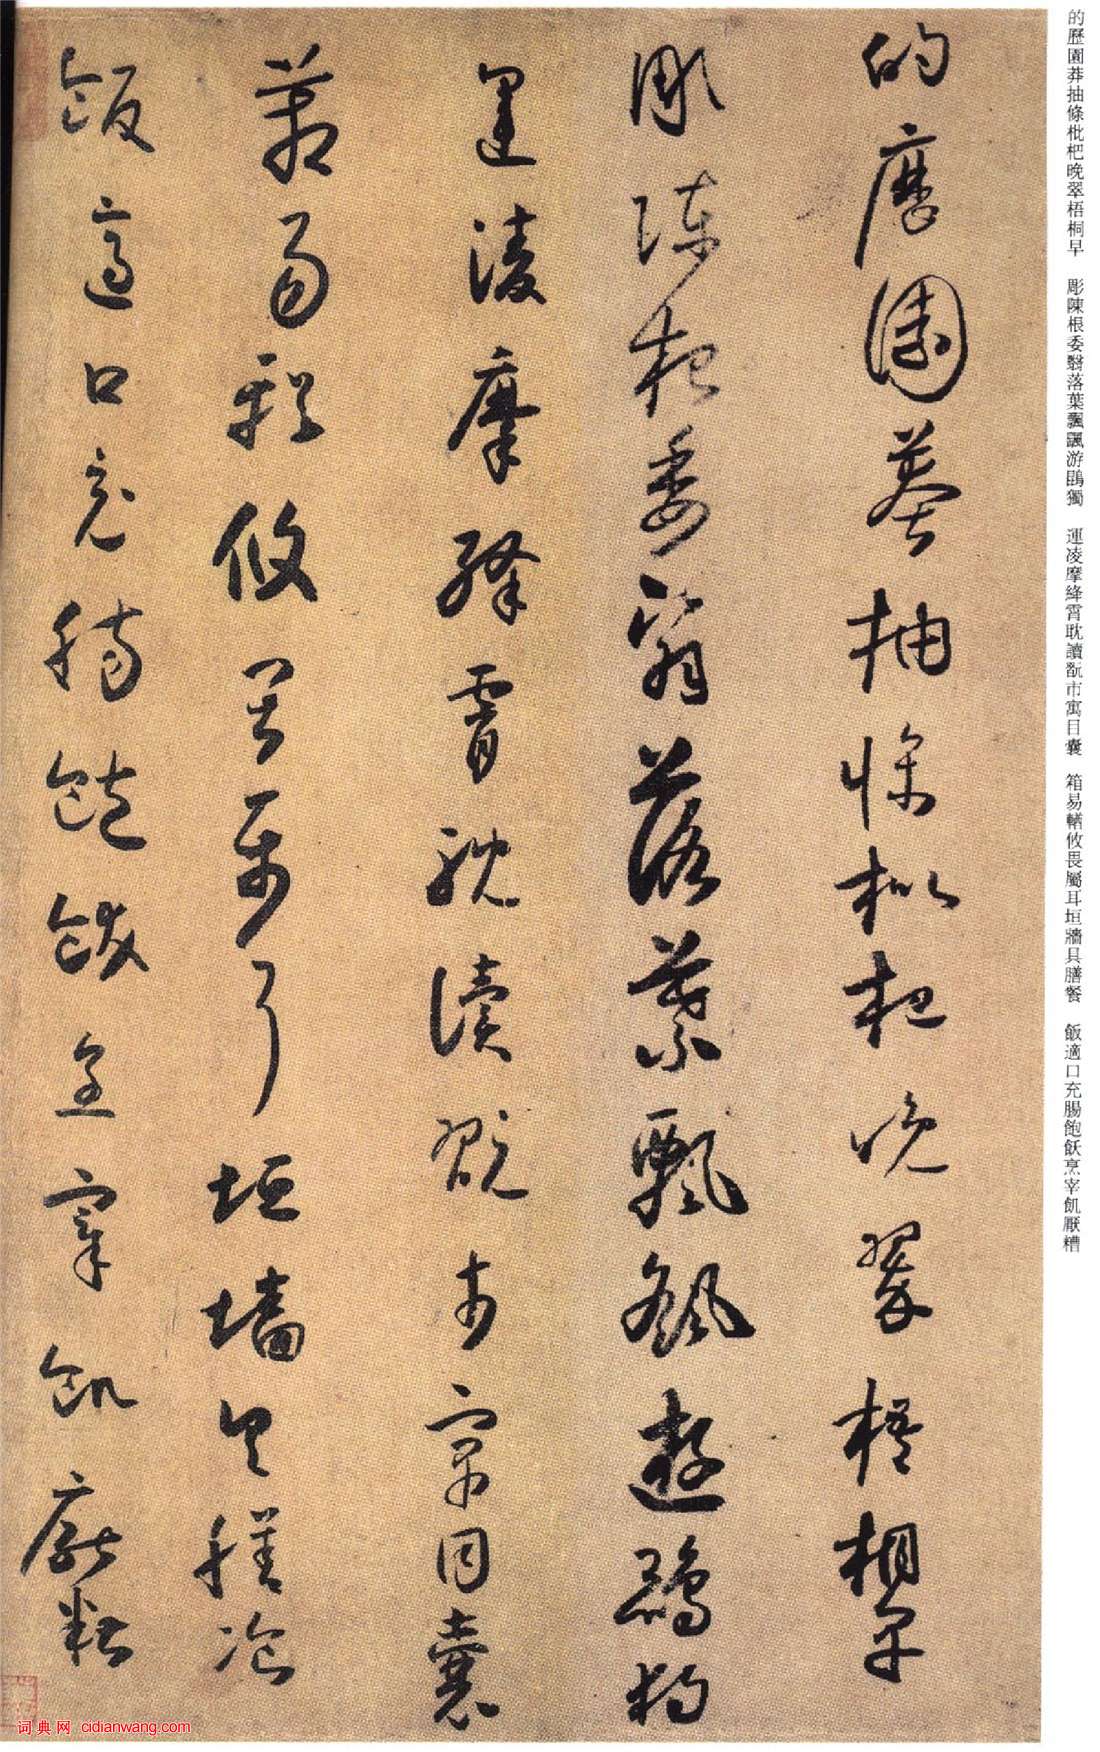 的歷園莽抽條枇杷晚翠梧桐早
彫陳根委翳落葉飄颻游鵾獨
運凌摩絳霄耽讀翫市寓目囊
箱易輶攸畏屬耳垣牆具膳餐
飯適口充腸飽飫烹宰飢厭糟
的歷園莽抽條枇杷晚翠梧桐早
彫陳根委翳落葉飄颻遊鵾獨
運凌摩絳霄耽讀翫市寓目囊
箱易輶攸畏屬耳垣墻具膳飡
飯適口充腸飽飫烹宰飢厭糟
词典网 cidianwang.com